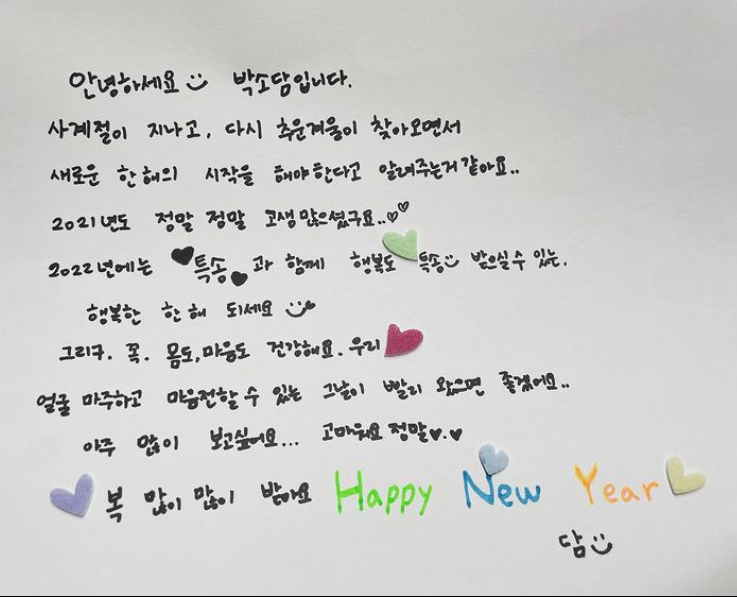 안녕하세요 박소담입니다.
사계절이 지나고, 다시 추운겨울이 찾아오면서
새로운 한해의 시작을 해야한다고 알려주는거같아요..
2021년도 정말 정말 고생많으셨구요..♡♡
2022년에는 ♥특송♥과 함께 행복도 특송 받으실수 있는.
행복한 한해 되세요
그리구. 꼭. 몸도,마음도 건강해요. 우리
얼굴 마주하고 마음전할수 있는 그날이 빨리 왔으면 좋겠어요..
아주 많이 보고싶어요... 고마워요 정말♥.♥
복 많이 많이 받아요 Happy New Year
담